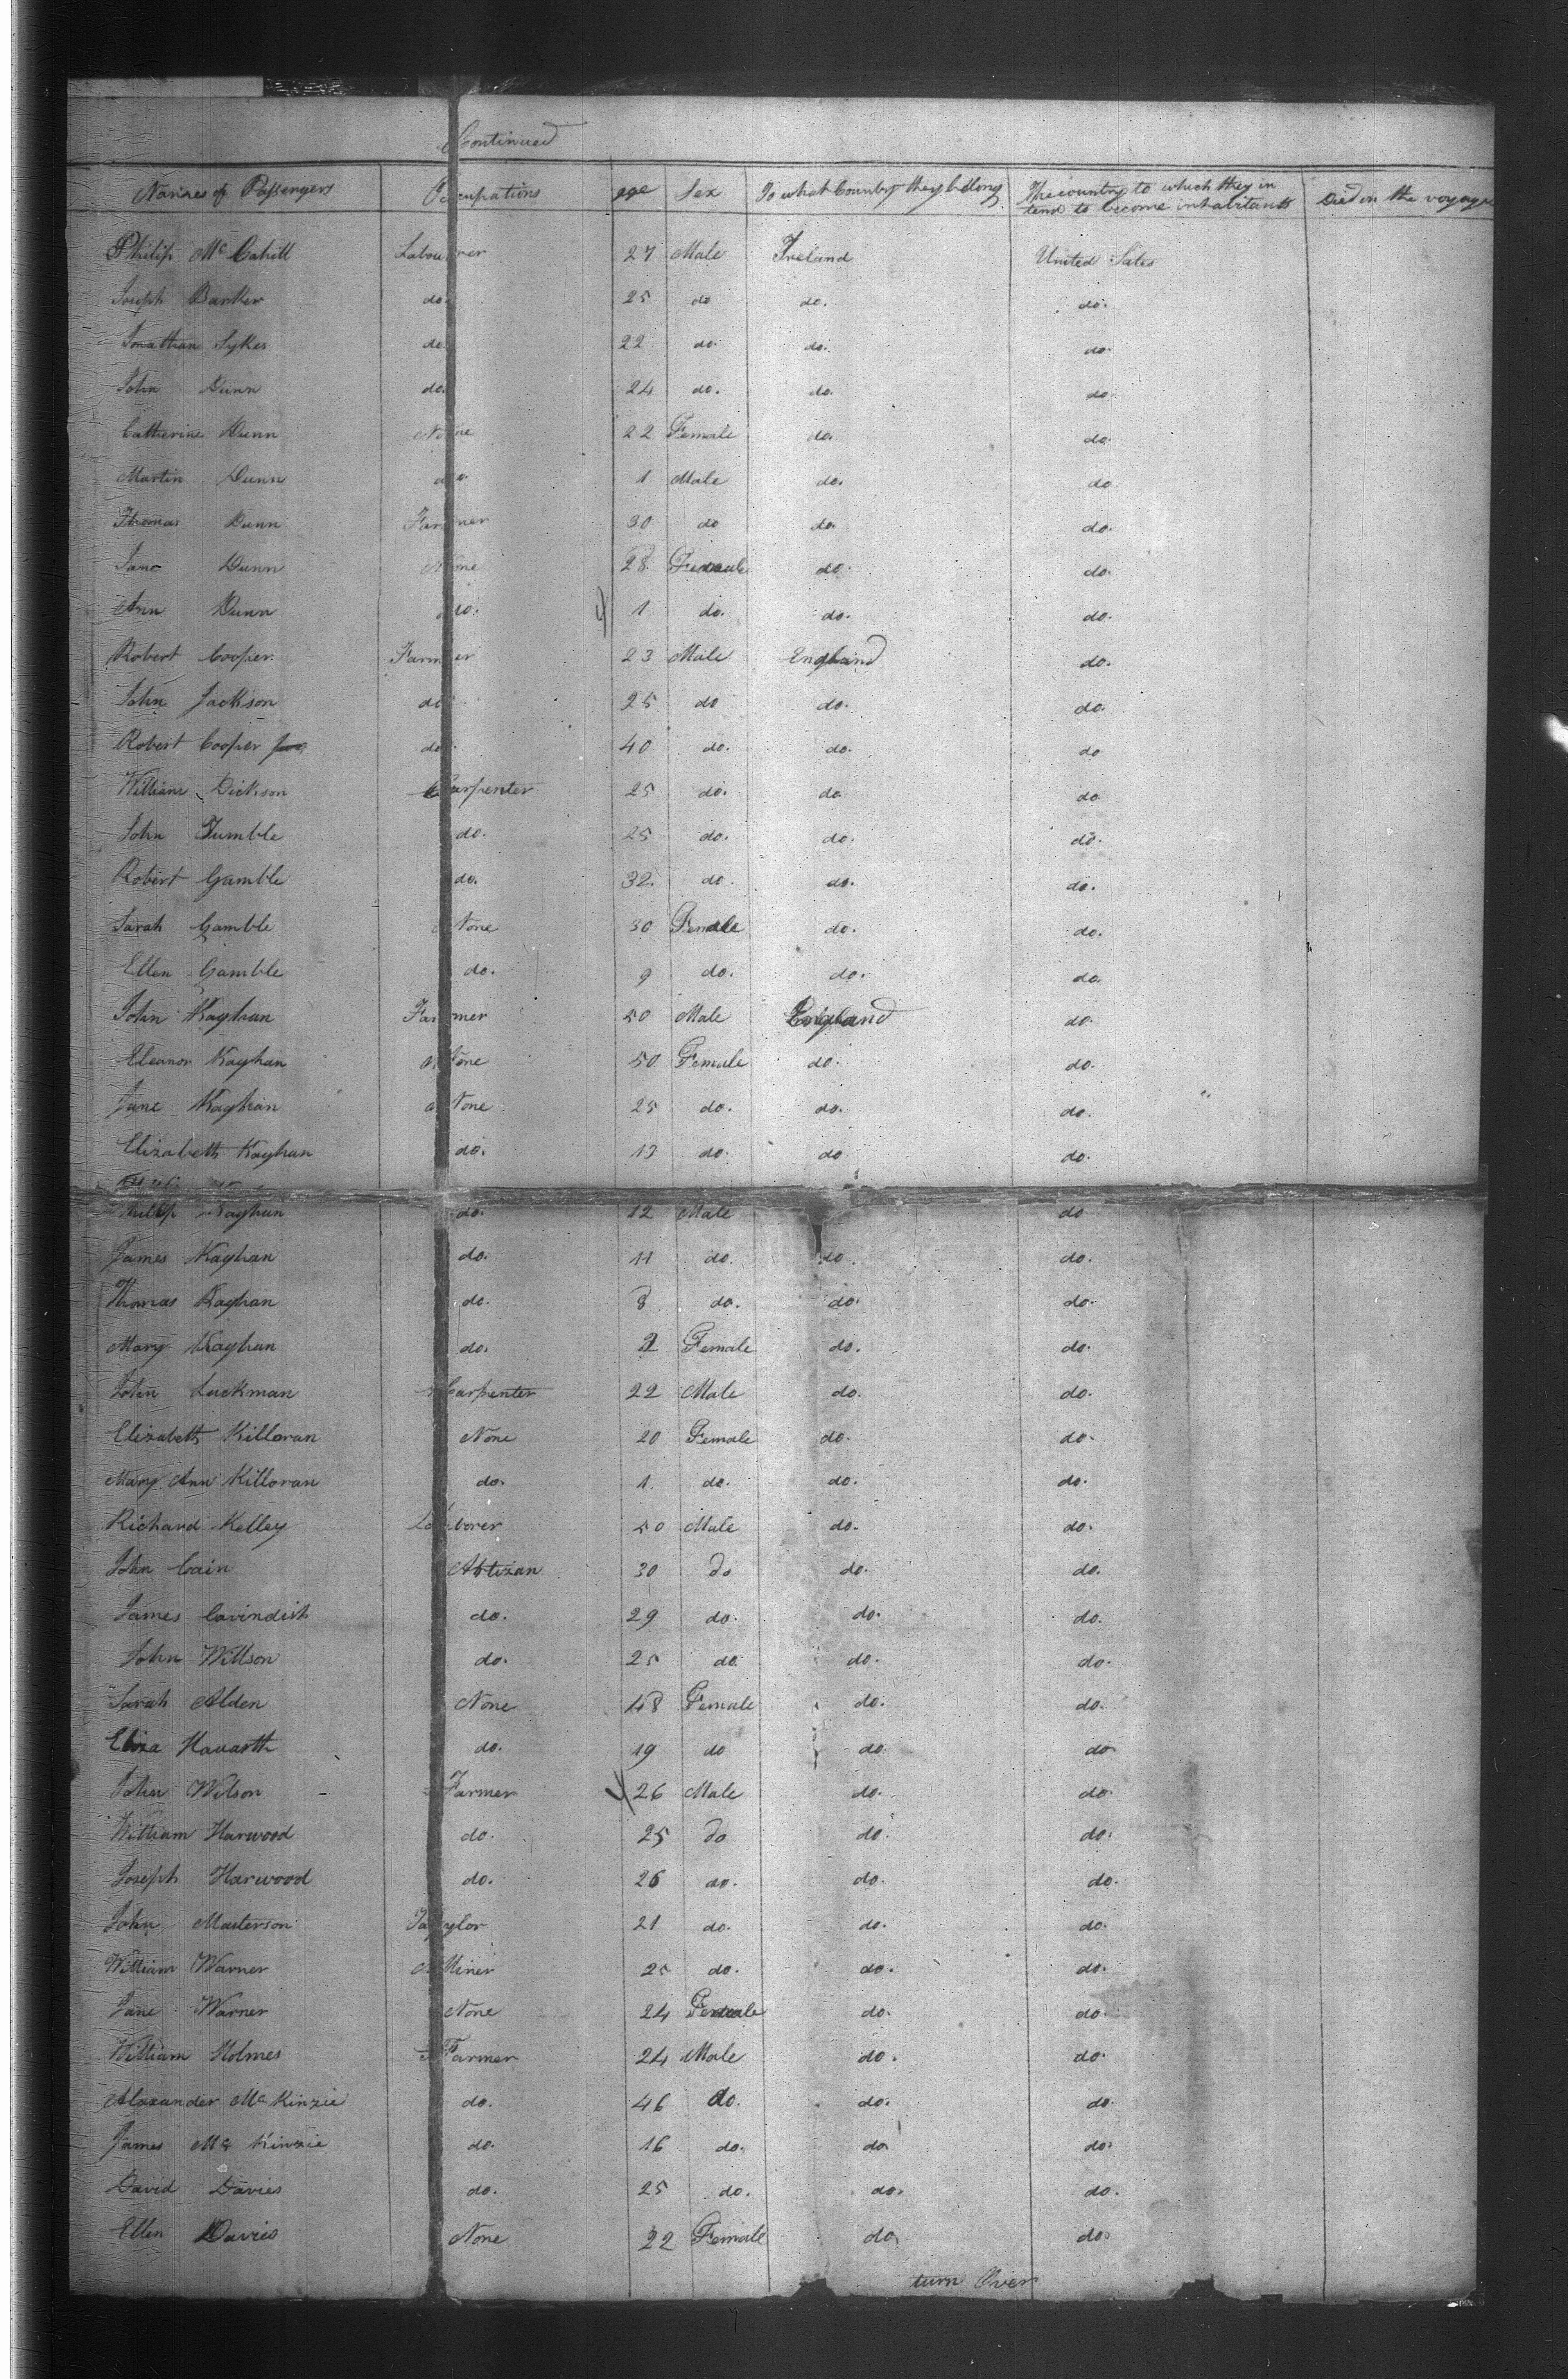 Continued
Names of Passengers Occupations age Sex To what Country they belong The country to which they in tend to become inhabitants Died on the voyage
Philip Mc Cahill Labourer 27 Male Ireland United Sates
Joseph Barker do 25 do do. do.
Jonathan Sykes do 22 do. do. do.
John Dunn do. 24 do. do. do.
Catherine Dunn None 22 Female do. do.
Martin Dunn do 1 Male do. do
Thomas Dunn Farmer 30 do do do.
Jane Dunn None 28 Female do. do.
Ann Dunn do. 1 do. do. do.
Robert Cooper Farmer 23 Male England do.
John Jackson do 25 do do. do.
Robert Cooper do 40 do. do. do
William Dickson Carpenter 25 do. do do
John Tumble do. 25 do. do. do.
Robert Gamble do. 32 do. do. do.
Sarah Gamble None 30 Female do. do.
Ellen Gamble do. 9 do. do. do.
John Kaghan Farmer 50 Male England do.
Eleanor Kaghan None 50 Female do. do.
Jane Kaghan None 25 do. do. do.
Elizabeth Kaghan do. 13 do. do do.
Philip Kaghan do. 12 Male do
James Kaghan do. 11 do. do. do.
Thomas Kaghan do. 8 do. do. do.
Mary Kaghan do. 2 Female do. do.
John Luckman Carpenter 22 Male do. do.
Elizabeth Killoran None 20 Female do. do.
Mary Ann Killoran do. 1 do. do. do.
Richard Kelley Laborer 50 Male do. do.
John Cain Artizan 30 do do. do.
James Cavindish do. 29 do. do. do.
John Willson do. 25 do. do. do.
Sarah Alden None 18 Female do. do.
Eliza Havarth do. 19 do do. do
John Wilson Farmer 26 Male do. do.
William Harwood do. 25 do do. do.
Joseph Harwood do. 26 do. do. do.
John Masterson Taylor 21 do. do. do.
William Warner Miner 25 do. do. do.
Jane Warner None 24 Female do. do.
William Holmes Farmer 24 Male do. do.
Alaxander Mc Kinzie do. 46 do. do. do.
James Mc Kinzie do. 16 do. do do.
David Davies do. 25 do. do. do.
Ellen Davies None 22 Female do. do.
turn Over